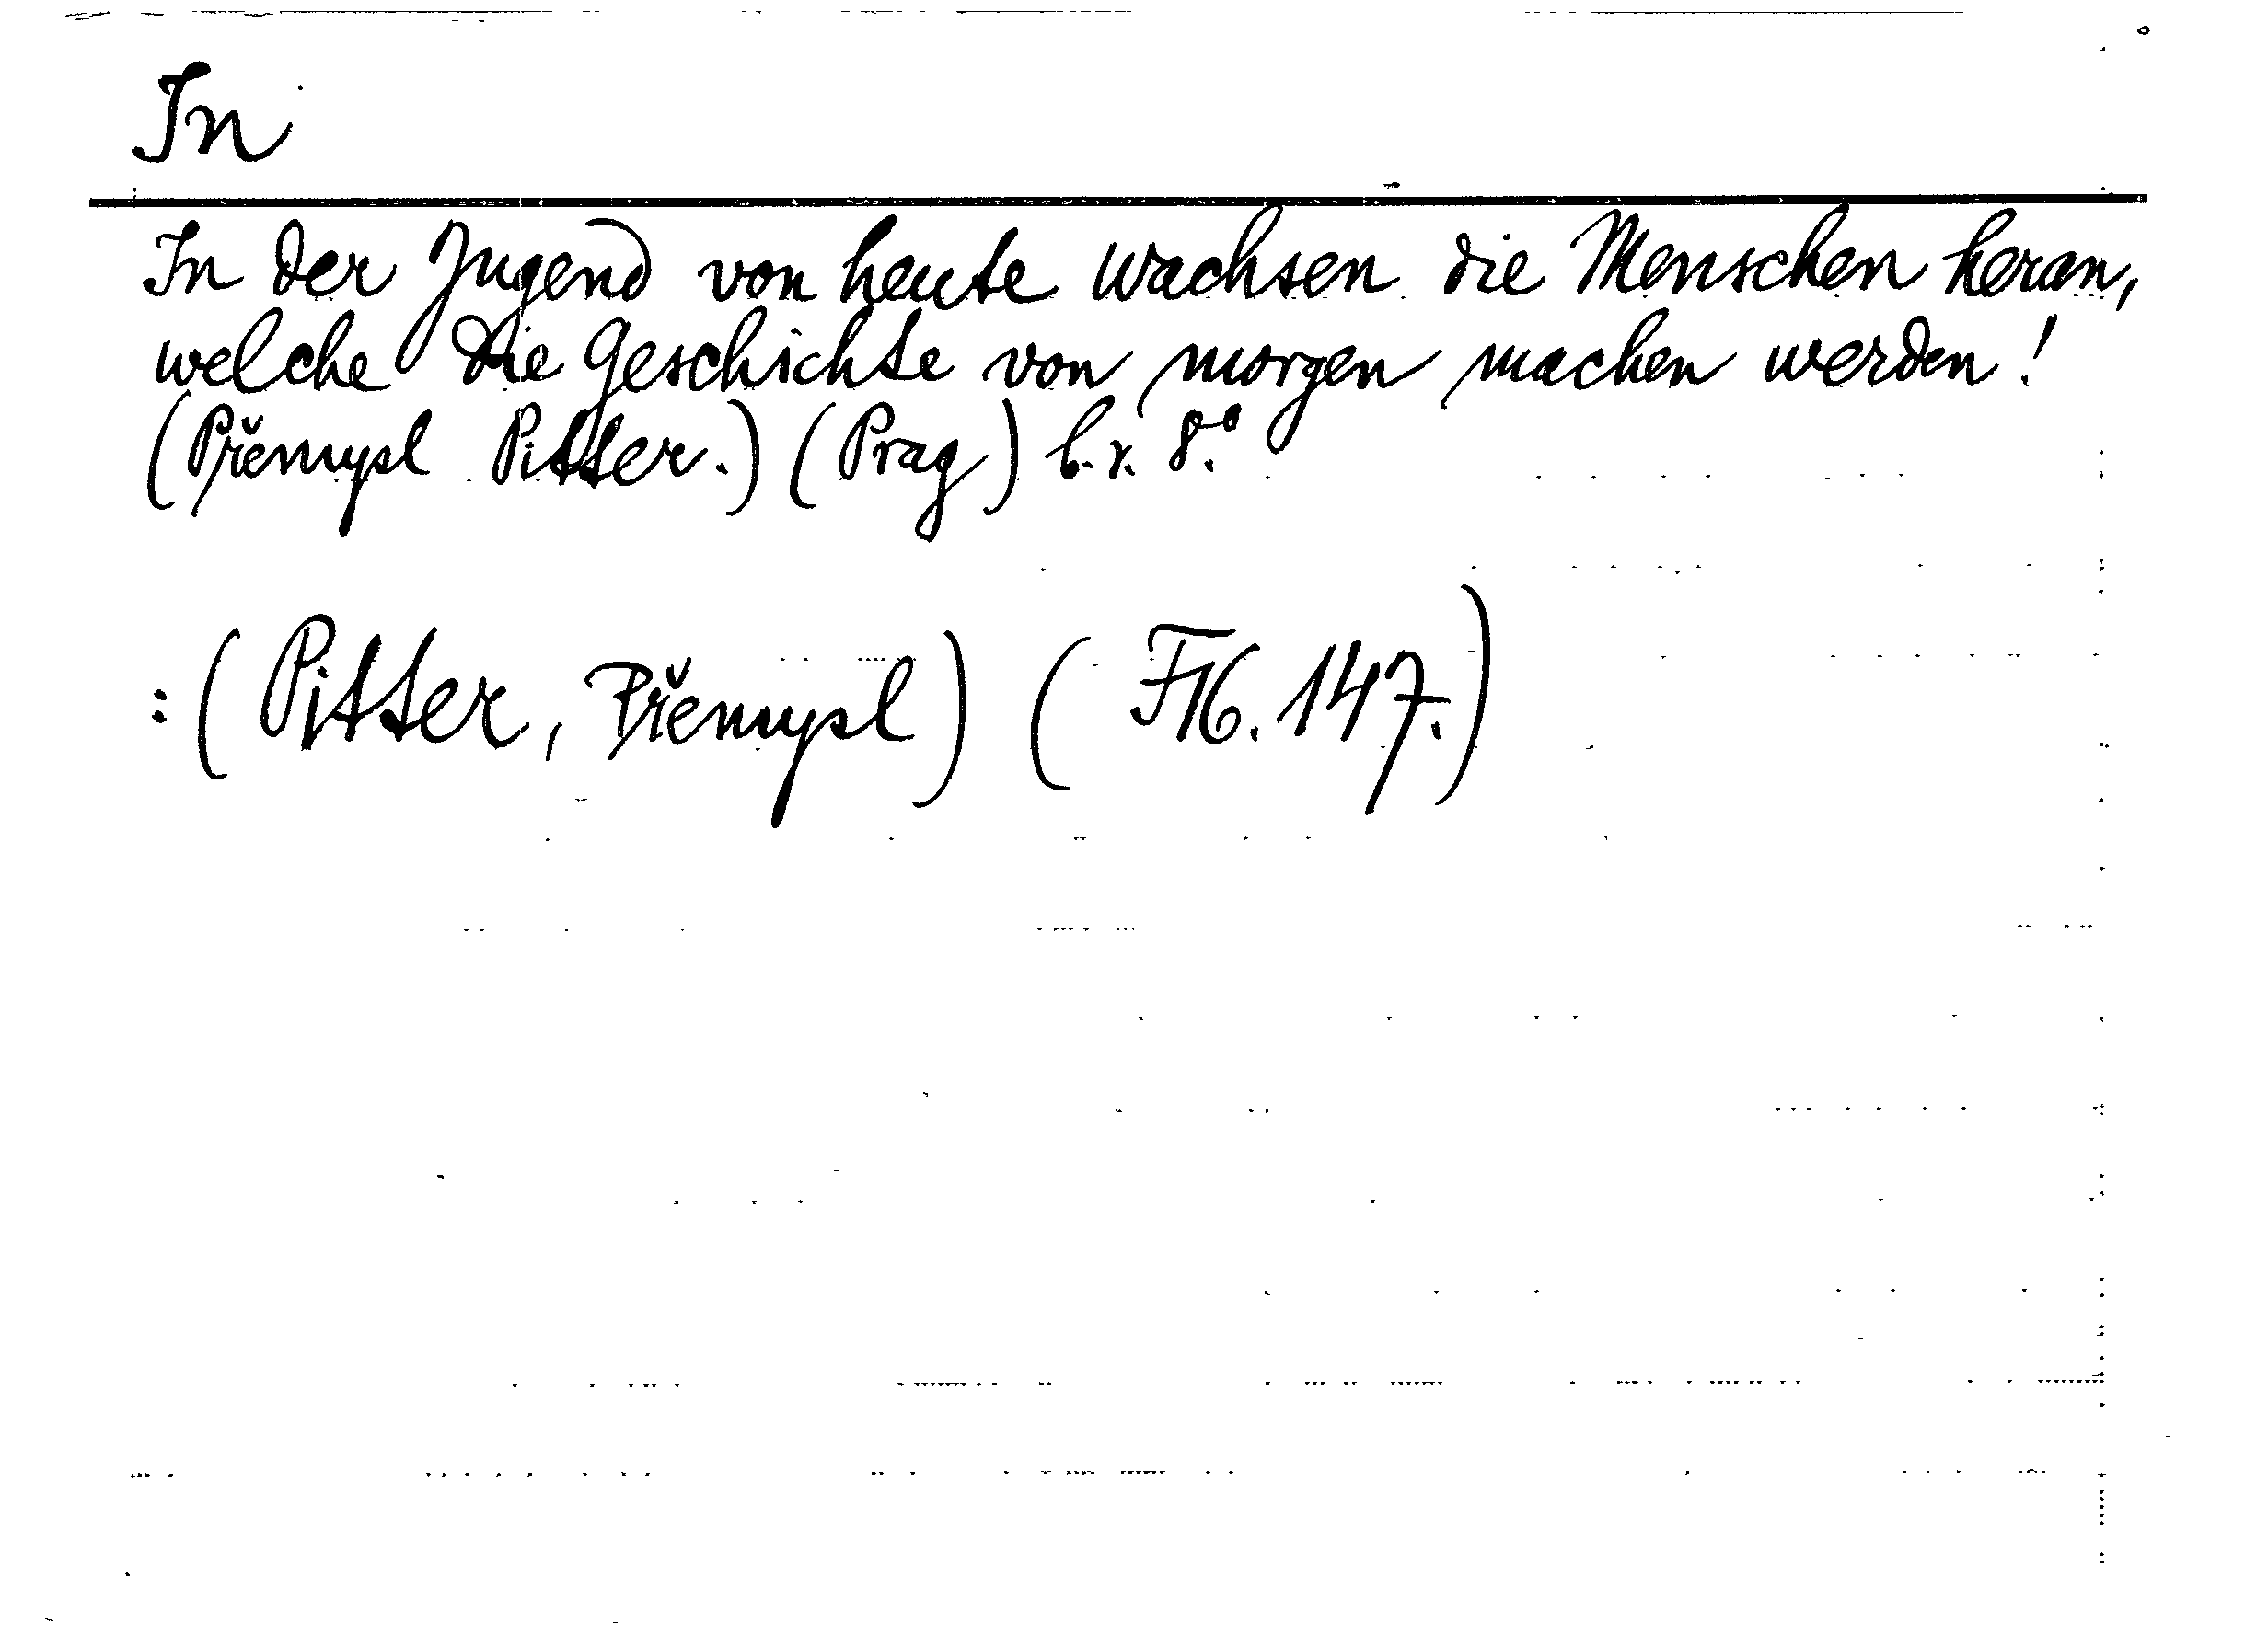 In
In der Jugend von heute wachsen die Menschen heran,
welche die Geschichte von morgen machen werden!
(Přemysl Pitter.) (Prag) b.r. 8.°
: (Pitter, Přemysl) (147.)